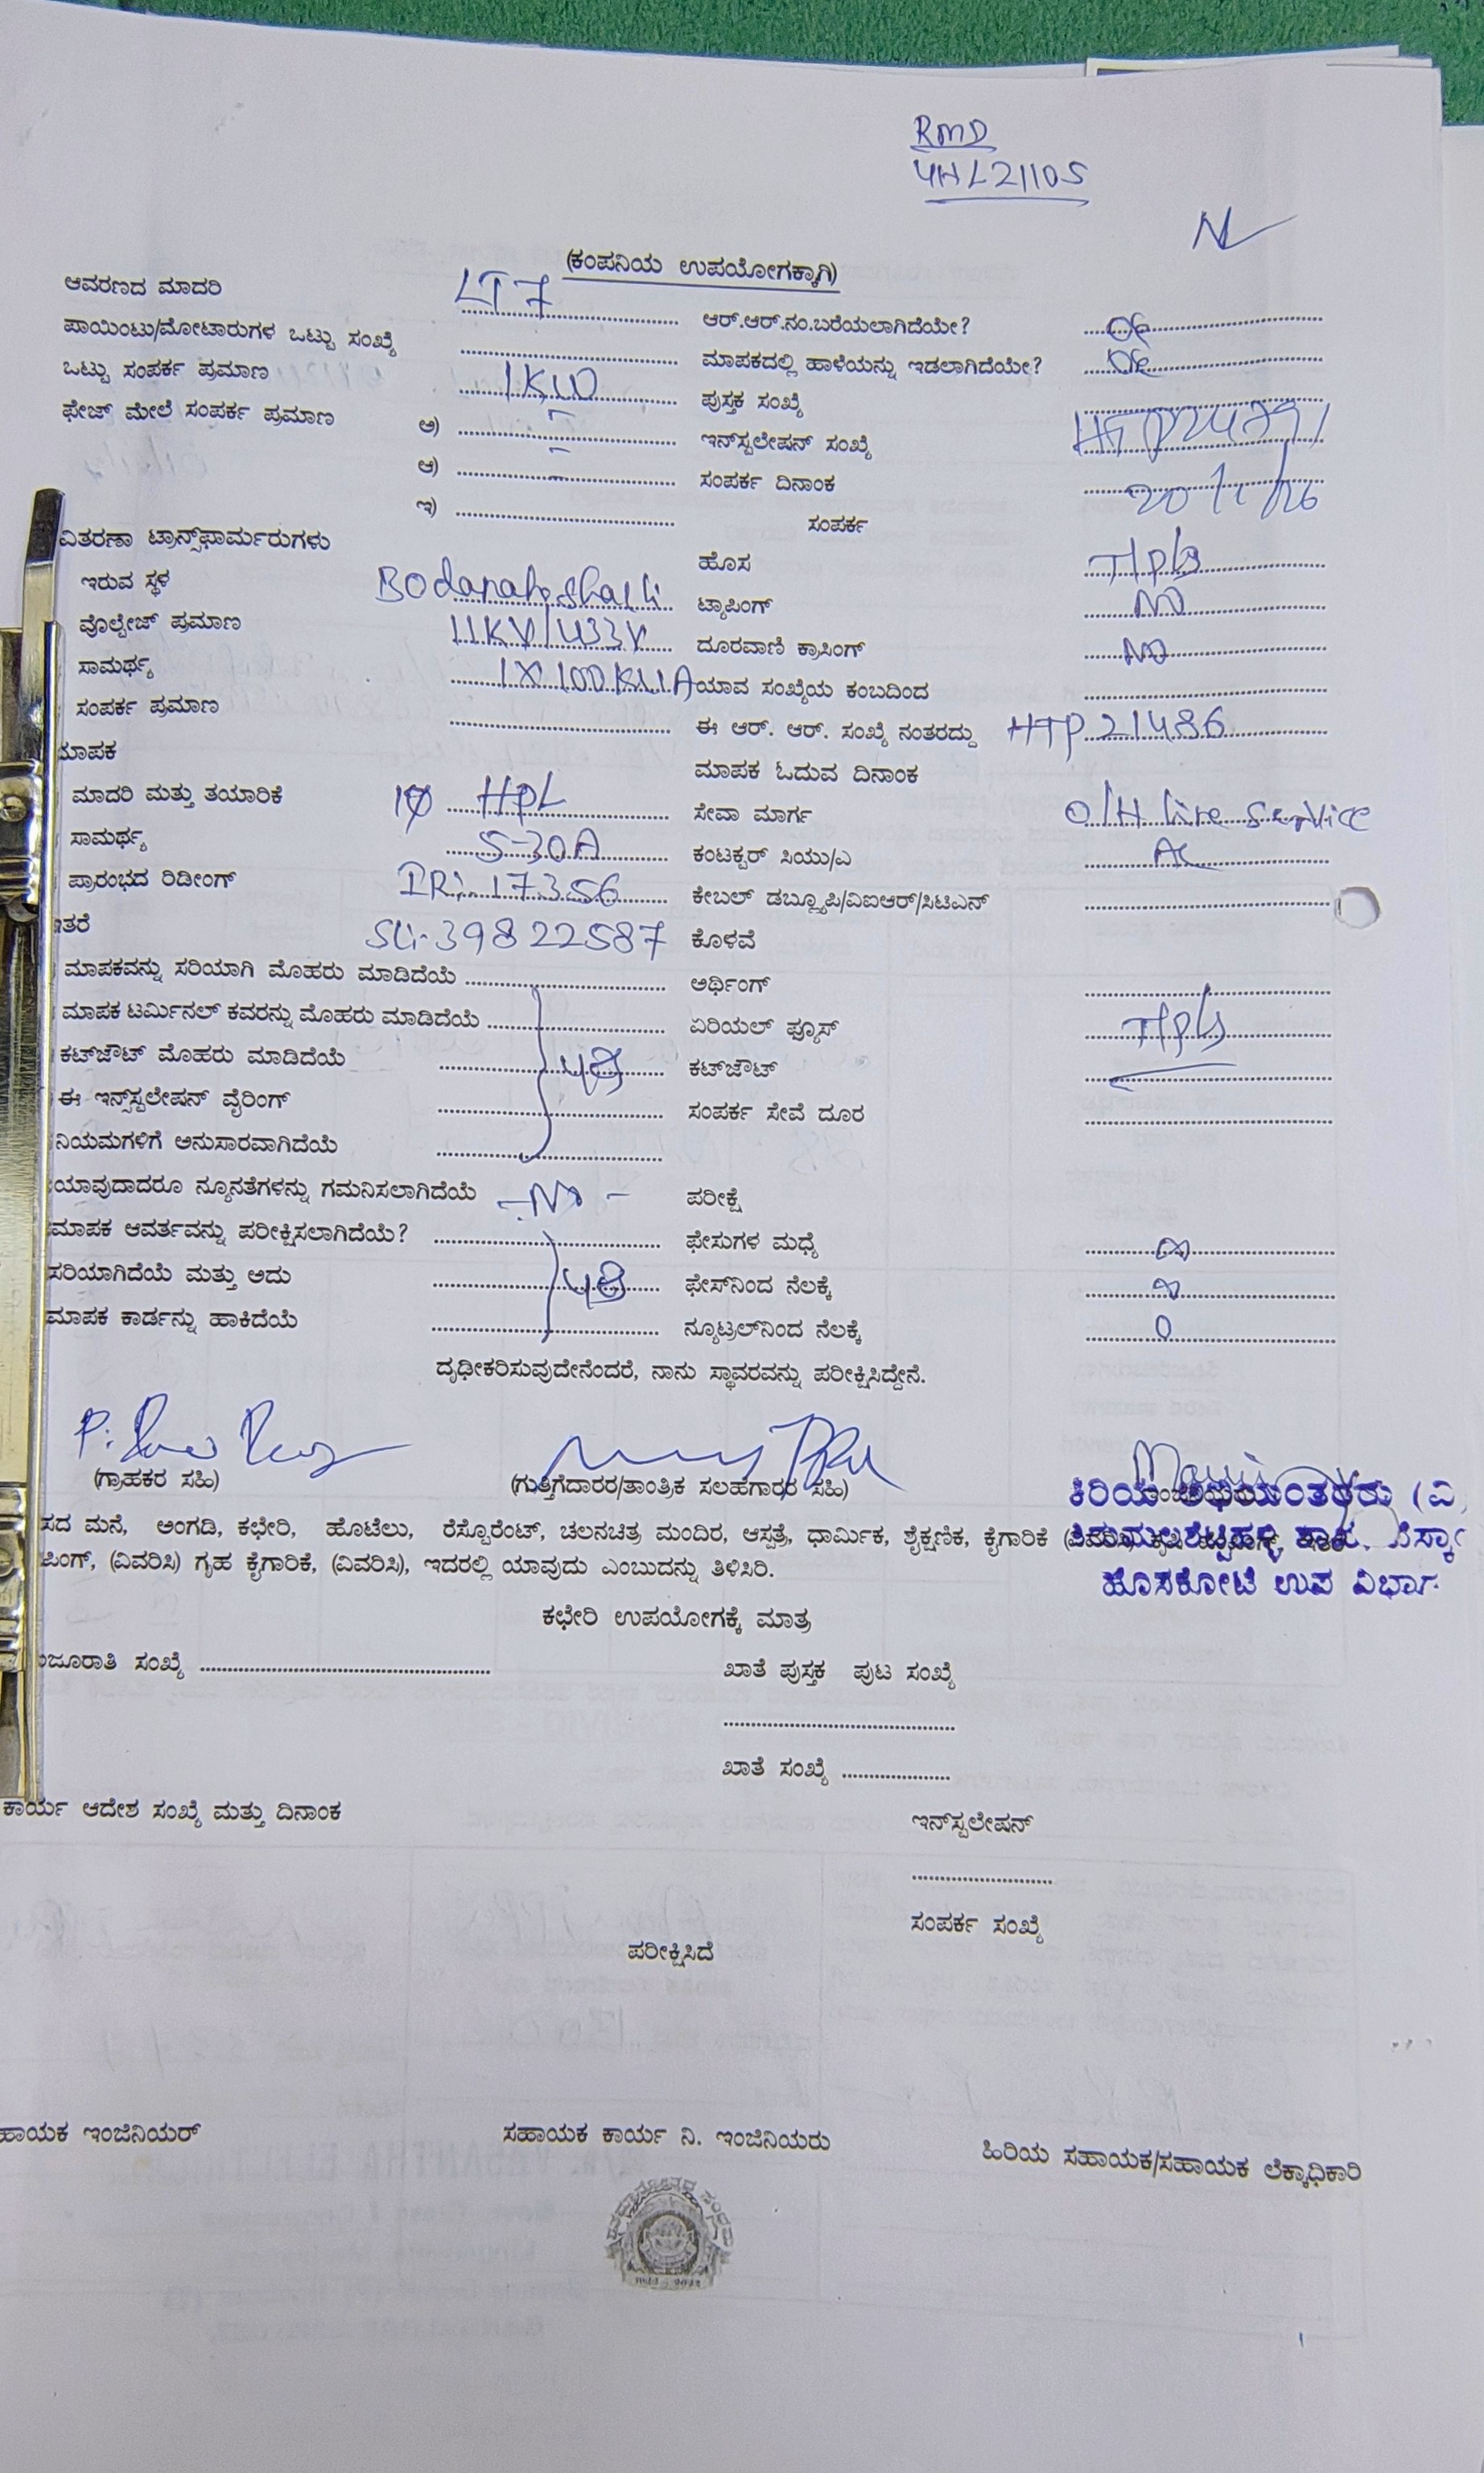 RMD
4HL21105
(ಕಂಪನಿಯ ಉಪಯೋಗಕ್ಕಾಗಿ)
ಆವರಣದ ಮಾದರಿ LT7 ಆರ್.ಆರ್.ನಂ.ಬರೆಯಲಾಗಿದೆಯೇ?
ಪಾಯಿಂಟು/ಮೋಟಾರುಗಳ ಒಟ್ಟು ಸಂಖ್ಯೆ ಮಾಪಕದಲ್ಲಿ ಹಾಳೆಯನ್ನು ಇಡಲಾಗಿದೆಯೇ?
ಒಟ್ಟು ಸಂಪರ್ಕ ಪ್ರಮಾಣ 1KW ಪುಸ್ತಕ ಸಂಖ್ಯೆ
ಫೇಜ್ ಮೇಲೆ ಸಂಪರ್ಕ ಪ್ರಮಾಣ ಅ) ಇನ್‌ಸ್ಟಲೇಷನ್ ಸಂಖ್ಯೆ
ಆ) ಸಂಪರ್ಕ ದಿನಾಂಕ
ಇ) ಸಂಪರ್ಕ
ವಿತರಣಾ ಟ್ರಾನ್ಸ್‌ಫಾರ್ಮರುಗಳು ಹೊಸ
ಇರುವ ಸ್ಥಳ ಟ್ಯಾಪಿಂಗ್ NO
ವೊಲ್ಟೇಜ್ ಪ್ರಮಾಣ 11KV/433V ದೂರವಾಣಿ ಕ್ರಾಸಿಂಗ್ NO
ಸಾಮರ್ಥ್ಯ 1X100KVA ಯಾವ ಸಂಖ್ಯೆಯ ಕಂಬದಿಂದ
ಸಂಪರ್ಕ ಪ್ರಮಾಣ ಈ ಆರ್. ಆರ್. ಸಂಖ್ಯೆ ನಂತರದ್ದು HTP21486
ಮಾಪಕ ಓದುವ ದಿನಾಂಕ
ಮಾದರಿ ಮತ್ತು ತಯಾರಿಕೆ 1Φ HPL ಸೇವಾ ಮಾರ್ಗ O/H line service
ಸಾಮರ್ಥ್ಯ 5-30A ಕಂಟಕ್ಟರ್ ಸಿಯು/ಎ
ಪ್ರಾರಂಭದ ರಿಡೀಂಗ್ IR:- 17356 ಕೇಬಲ್ ಡಬ್ಲ್ಯೂಪಿ/ವಿಐಆರ್/ಸಿಟಿಎನ್
SL:-39822587 ಕೊಳವೆ
ಮಾಪಕವನ್ನು ಸರಿಯಾಗಿ ಮೊಹರು ಮಾಡಿದೆಯೆ ಅರ್ಥಿಂಗ್
ಮಾಪಕ ಟರ್ಮಿನಲ್ ಕವರನ್ನು ಮೊಹರು ಮಾಡಿದೆಯೆ ಏರಿಯಲ್ ಫ್ಯೂಸ್
ಕಟ್‌ಜೌಟ್ ಮೊಹರು ಮಾಡಿದೆಯೆ ಕಟ್‌ಜೌಟ್
ಈ ಇನ್ಸ್‌ಸ್ಟಲೇಷನ್ ವೈರಿಂಗ್ ಸಂಪರ್ಕ ಸೇವೆ ದೂರ
ನಿಯಮಗಳಿಗೆ ಅನುಸಾರವಾಗಿದೆಯೆ
ಯಾವುದಾದರೂ ನ್ಯೂನತೆಗಳನ್ನು ಗಮನಿಸಲಾಗಿದೆಯೆ -NO- ಪರೀಕ್ಷೆ
ಮಾಪಕ ಆವರ್ತವನ್ನು ಪರೀಕ್ಷಿಸಲಾಗಿದೆಯೆ? ಫೇಸುಗಳ ಮಧ್ಯೆ ∞
ಸರಿಯಾಗಿದೆಯೆ ಮತ್ತು ಅದು ಫೇಸ್‌ನಿಂದ ನೆಲಕ್ಕೆ ∞
ಮಾಪಕ ಕಾರ್ಡನ್ನು ಹಾಕಿದೆಯೆ ನ್ಯೂಟ್ರಲ್‌ನಿಂದ ನೆಲಕ್ಕೆ 0
ದೃಢೀಕರಿಸುವುದೇನೆಂದರೆ, ನಾನು ಸ್ಥಾವರವನ್ನು ಪರೀಕ್ಷಿಸಿದ್ದೇನೆ.
(ಗ್ರಾಹಕರ ಸಹಿ) (ಗುತ್ತಿಗೆದಾರರ/ತಾಂತ್ರಿಕ ಸಲಹೆಗಾರರ ಸಹಿ)
ಮನೆ, ಅಂಗಡಿ, ಕಛೇರಿ, ಹೊಟೆಲು, ರೆಸ್ಟೊರೆಂಟ್, ಚಲನಚಿತ್ರ ಮಂದಿರ, ಆಸ್ಪತ್ರೆ, ಧಾರ್ಮಿಕ, ಶೈಕ್ಷಣಿಕ, ಕೈಗಾರಿಕೆ
(ವಿವರಿಸಿ) ಗೃಹ ಕೈಗಾರಿಕೆ, (ವಿವರಿಸಿ), ಇದರಲ್ಲಿ ಯಾವುದು ಎಂಬುದನ್ನು ತಿಳಿಸಿರಿ.
ಹೊಸಕೋಟೆ ಉಪ ವಿಭಾಗ
ಕಛೇರಿ ಉಪಯೋಗಕ್ಕೆ ಮಾತ್ರ
ಸಂಖ್ಯೆ ಖಾತೆ ಪುಸ್ತಕ ಪುಟ ಸಂಖ್ಯೆ
ಖಾತೆ ಸಂಖ್ಯೆ
ಕಾರ್ಯ ಆದೇಶ ಸಂಖ್ಯೆ ಮತ್ತು ದಿನಾಂಕ
ಇನ್‌ಸ್ಟಲೇಷನ್
ಸಂಪರ್ಕ ಸಂಖ್ಯೆ
ಪರೀಕ್ಷಿಸಿದೆ
ಹಾಯಕ ಇಂಜಿನಿಯರ್ ಸಹಾಯಕ ಕಾರ್ಯ ನಿ. ಇಂಜಿನಿಯರು ಹಿರಿಯ ಸಹಾಯಕ/ಸಹಾಯಕ ಲೆಕ್ಕಾಧಿಕಾರಿ